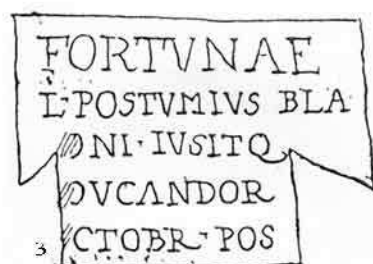 FORTVNAE
L·POSTVMIVS BLA
ONI·IVSITO
OVCANDOR
3 CTOBR·POS